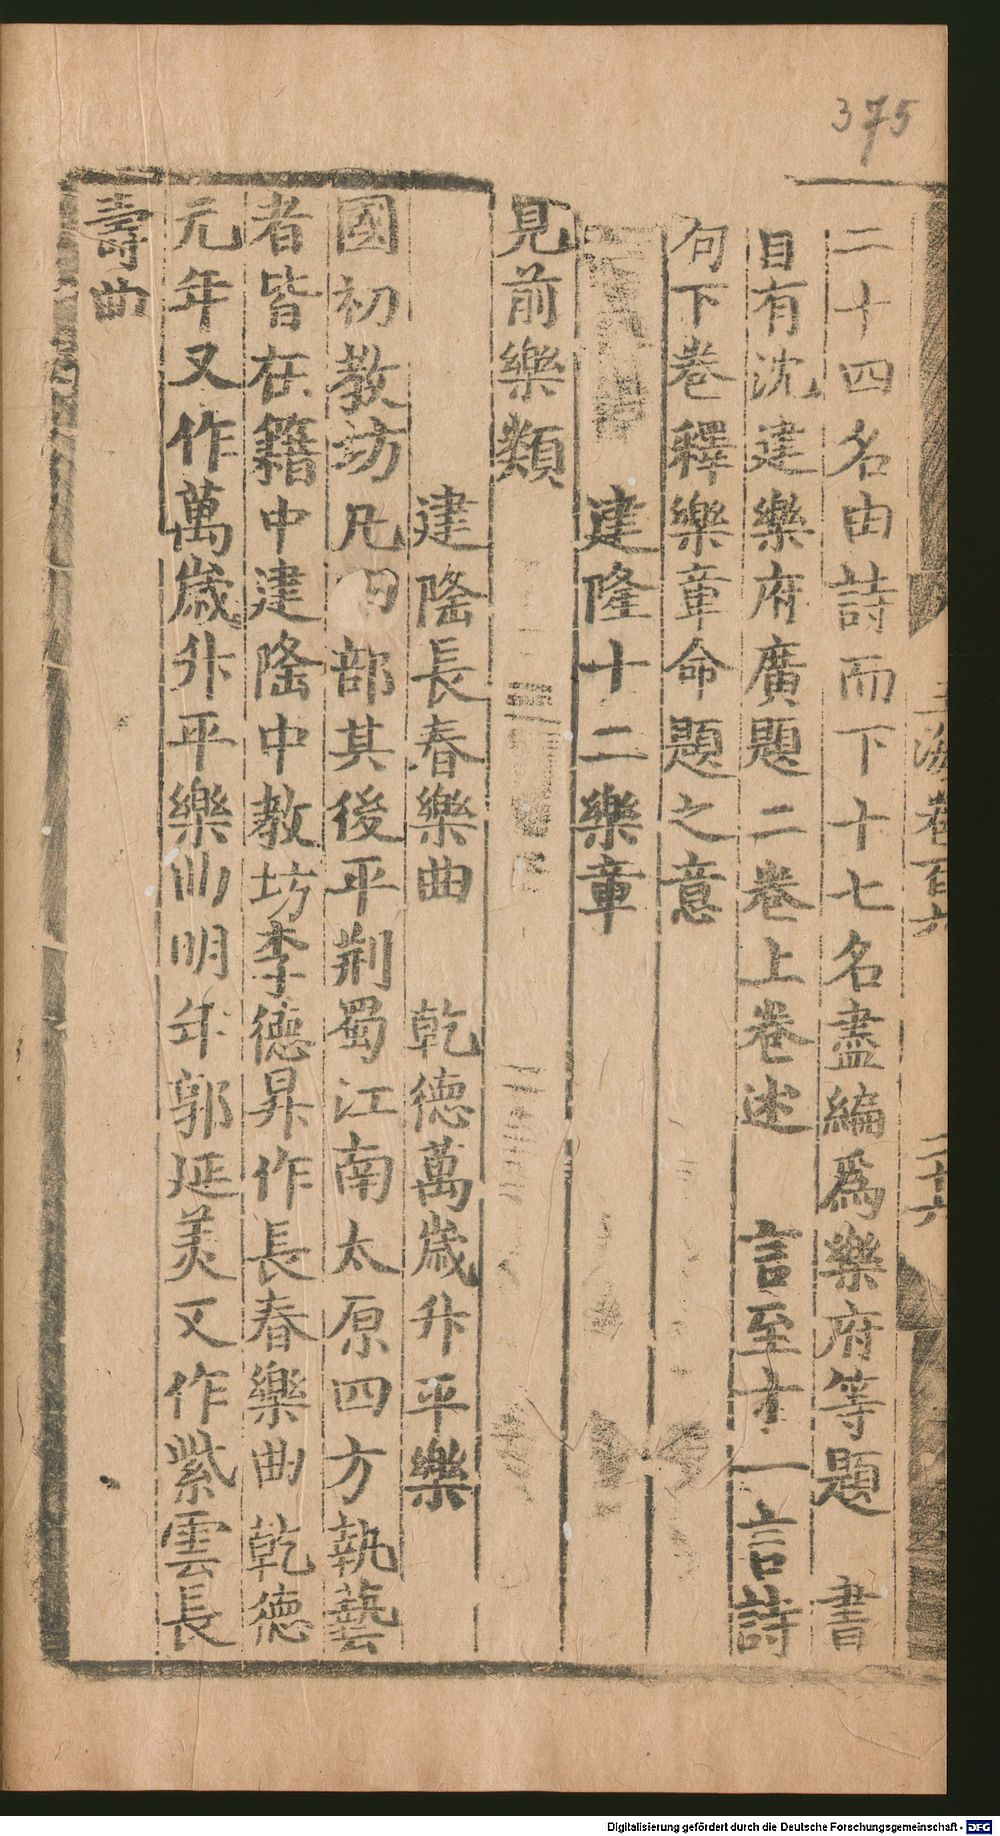 375
二十四名由詩而下十七名盡編爲樂府等題　書
目有沈建樂府廣題二卷上卷述　言至十一言詩
句下卷釋樂章命題之意
建隆十二樂章
見前樂類
建隆長春樂曲　乾德萬歲升平樂
國初教坊凡四部其後平荆蜀江南太原四方執藝
者皆在籍中建隆中教坊李德昇作長春樂曲乾德
元年又作萬歲升平樂曲明年郭延美又作紫雲長
壽曲
海卷百六
二十六
Digitalisierung gefördert durch die Deutsche Forschungsgemeinschaft - DFG